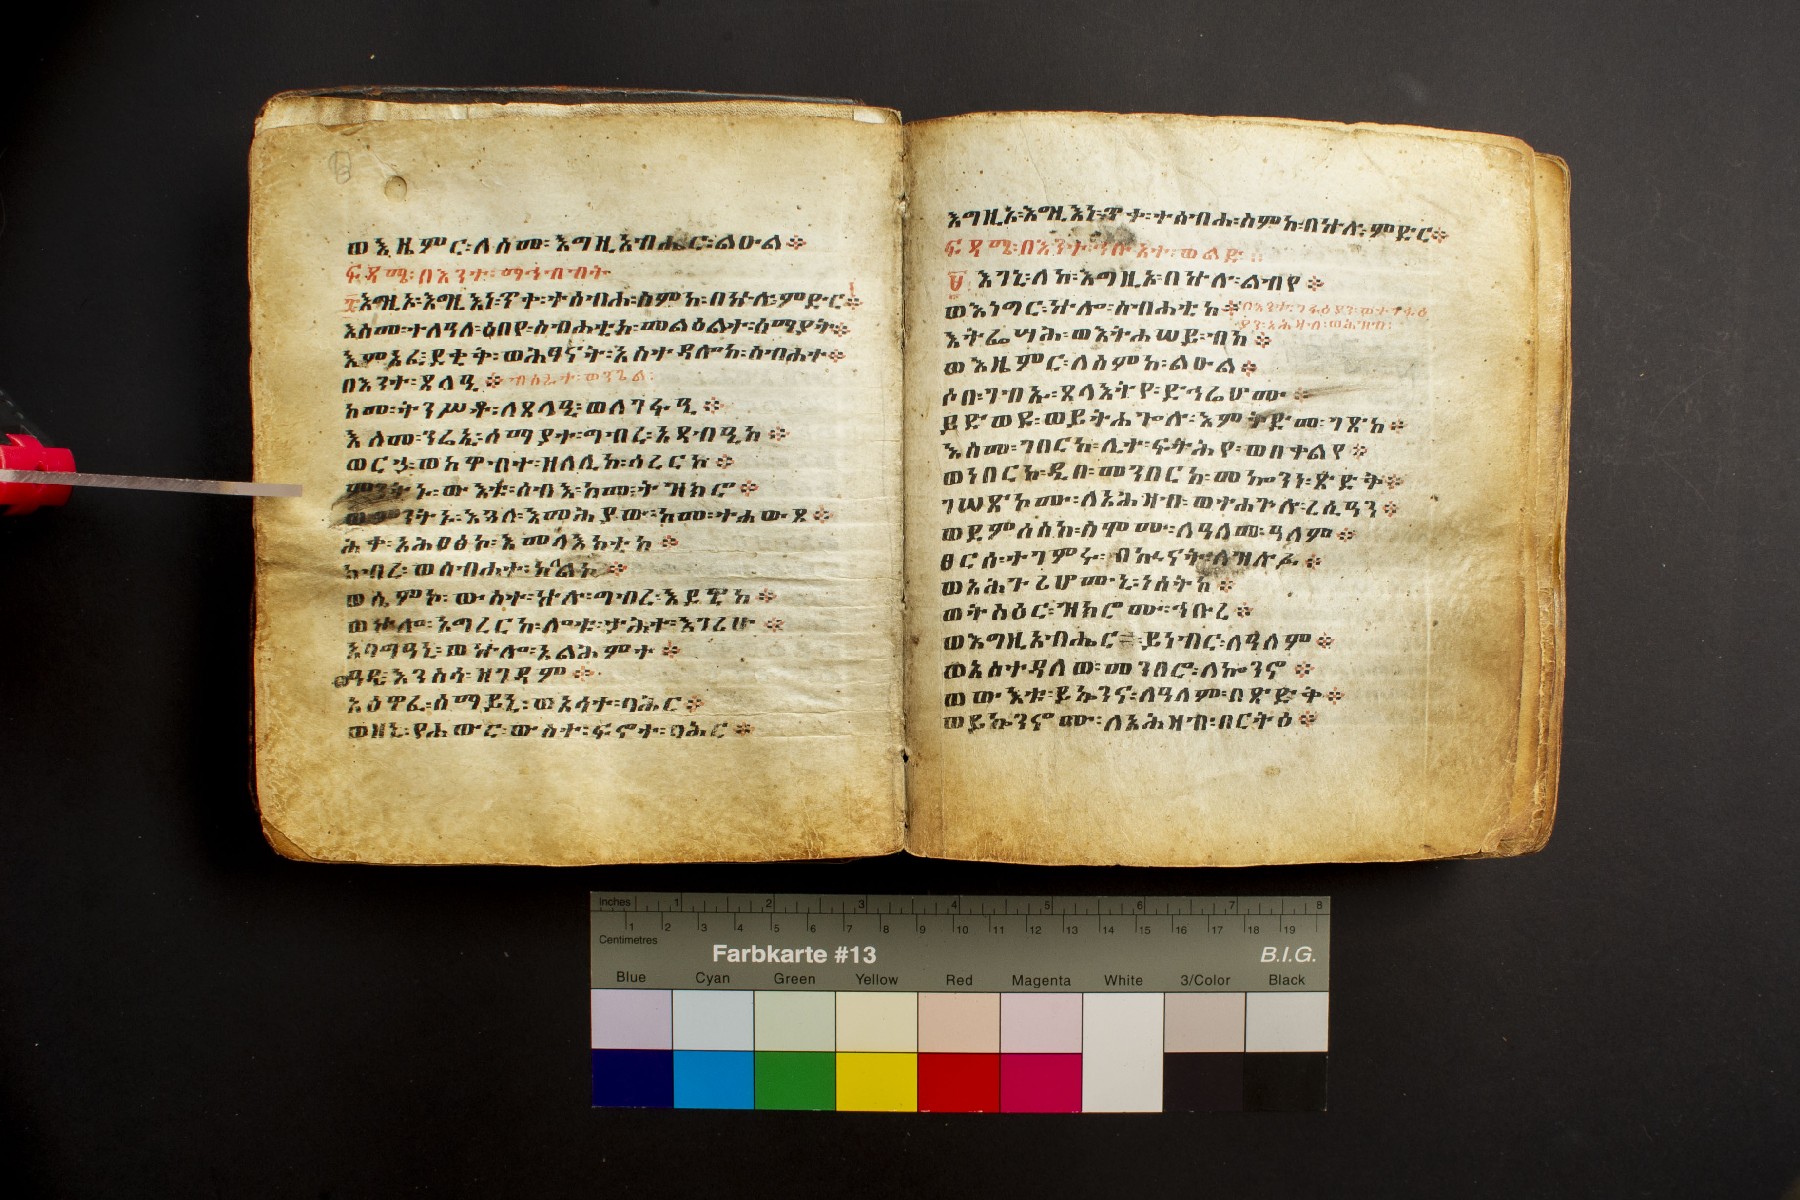 ወእዜምር፡ለስሙ፡እግዚአብሔር፡ልዑል፨
ፍጻሜ፡በእንተ፡ማኅበብት
፰እግዚኦ፡እግዚእነ፡ጥቀ፡ተሰብሐ፡ስምከ፡በኵሉ፡ምድር፨
እስመ፡ተለዓለ፡ዕበየ፡ስብሐቲከ፡መልዕልተ፡ሰማያት፨
እምአፈ፡ደቂቅ፡ወሕፃናት፡አስተዳሎከ፡ስብሐተ፨
በእንተ፡ጸላዒ፨
ከመ፡ትንሥቶ፡ለጸላዒ፡ወለገፋዒ፨
እስመ፡ንሬኢ፡ሰማያተ፡ግብረ፡አጻብዒከ፨
ወርኃ፡ወከዋብተ፡ዘለሊከ፡ሳረርከ፨
ምንት፡ኑ፡ውእቱ፡ሰብእ፡ከመ፡ትዝክሮ፨
ወምንት፡ኑ፡እጓለ፡እመሕያው፡ከመ፡ተሐውጾ፨
ሕቀ፡አሕፀፅኮ፡እመላእክቲከ፨
ክብረ፡ወስብሐተ፡ከለልኮ፨
ወሤምኮ፡ውስተ፡ኵሉ፡ግብረ፡እደዊከ፨
ወኵሎ፡አግረርከ፡ሎቱ፡ታሕተ፡እገሪሁ፨
አባግዓኒ፡ወኵሎ፡አልሕምተ፨
ዓዲ፡እንስሳ፡ዘገዳም፨
አዕዋፈ፡ሰማይኒ፡ወአሳተ፡ባሕር፨
ወዘኒ፡የሐውር፡ውስተ፡ፍኖተ፡ባሕር፨
እግዚኦ፡እግዚእነ፡ጥቀ፡ተሰብሐ፡ስምከ፡በኵሉ፡ምድር፨
ፍጻሜ፡በእንተ፡ኅቡአተ፡ወልድ
፱እገኒ፡ለከ፡እግዚኦ፡በኵሉ፡ልብየ፨
ወእነግር፡ኵሎ፡ስብሐቲከ፨
እትፌሣሕ፡ወእትሐሠይ፡ብከ፨
ወእዜምር፡ለስምከ፡ልዑል፨
ሶበ፡ገብኡ፡ጸላእትየ፡ድኅሬሆሙ፨
ይድወዩ፡ወይትሐጐሉ፡እምቅድመ፡ገጽከ፨
እስመ፡ገበርከ፡ሊተ፡ፍትሕየ፡ወበቀልየ፨
ወነበርከ፡ዲበ፡መንበርከ፡መኰንነ፡ጽድቅ፨
ገሠጽኮሙ፡ለአሕዛብ፡ወተሐጕሉ፡ረሲዓን፨
ወደምሰስከ፡ስሞሙ፡ለዓለመ፡ዓለም፨
ፀርሰ፡ተገምሩ፡በኲናት፡ለዝሉፉ፨
ወአሕጉሪሆሙኒ፡ነሠትከ፨
ወትስዕር፡ዝክሮሙ፡ኅቡረ፨
ወእግዚአብሔር፡ይነብር፡ለዓለም፨
ወአስተዳለወ፡መንበሮ፡ለኰንኖ፨
ወውእቱ፡ይኴንና፡ለዓለም፡በጽድቅ፨
ወይኴንኖሙ፡ለአሕዛብ፡በርትዕ፨
Inches 1 2 3 4 5 6 7 8
1 2 3 4 5 6 7 8 9 10 11 12 13 14 15 16 17 18 19
Centimetres
Farbkarte #13 B.I.G.
Blue Cyan Green Yellow Red Magenta White 3/Color Black